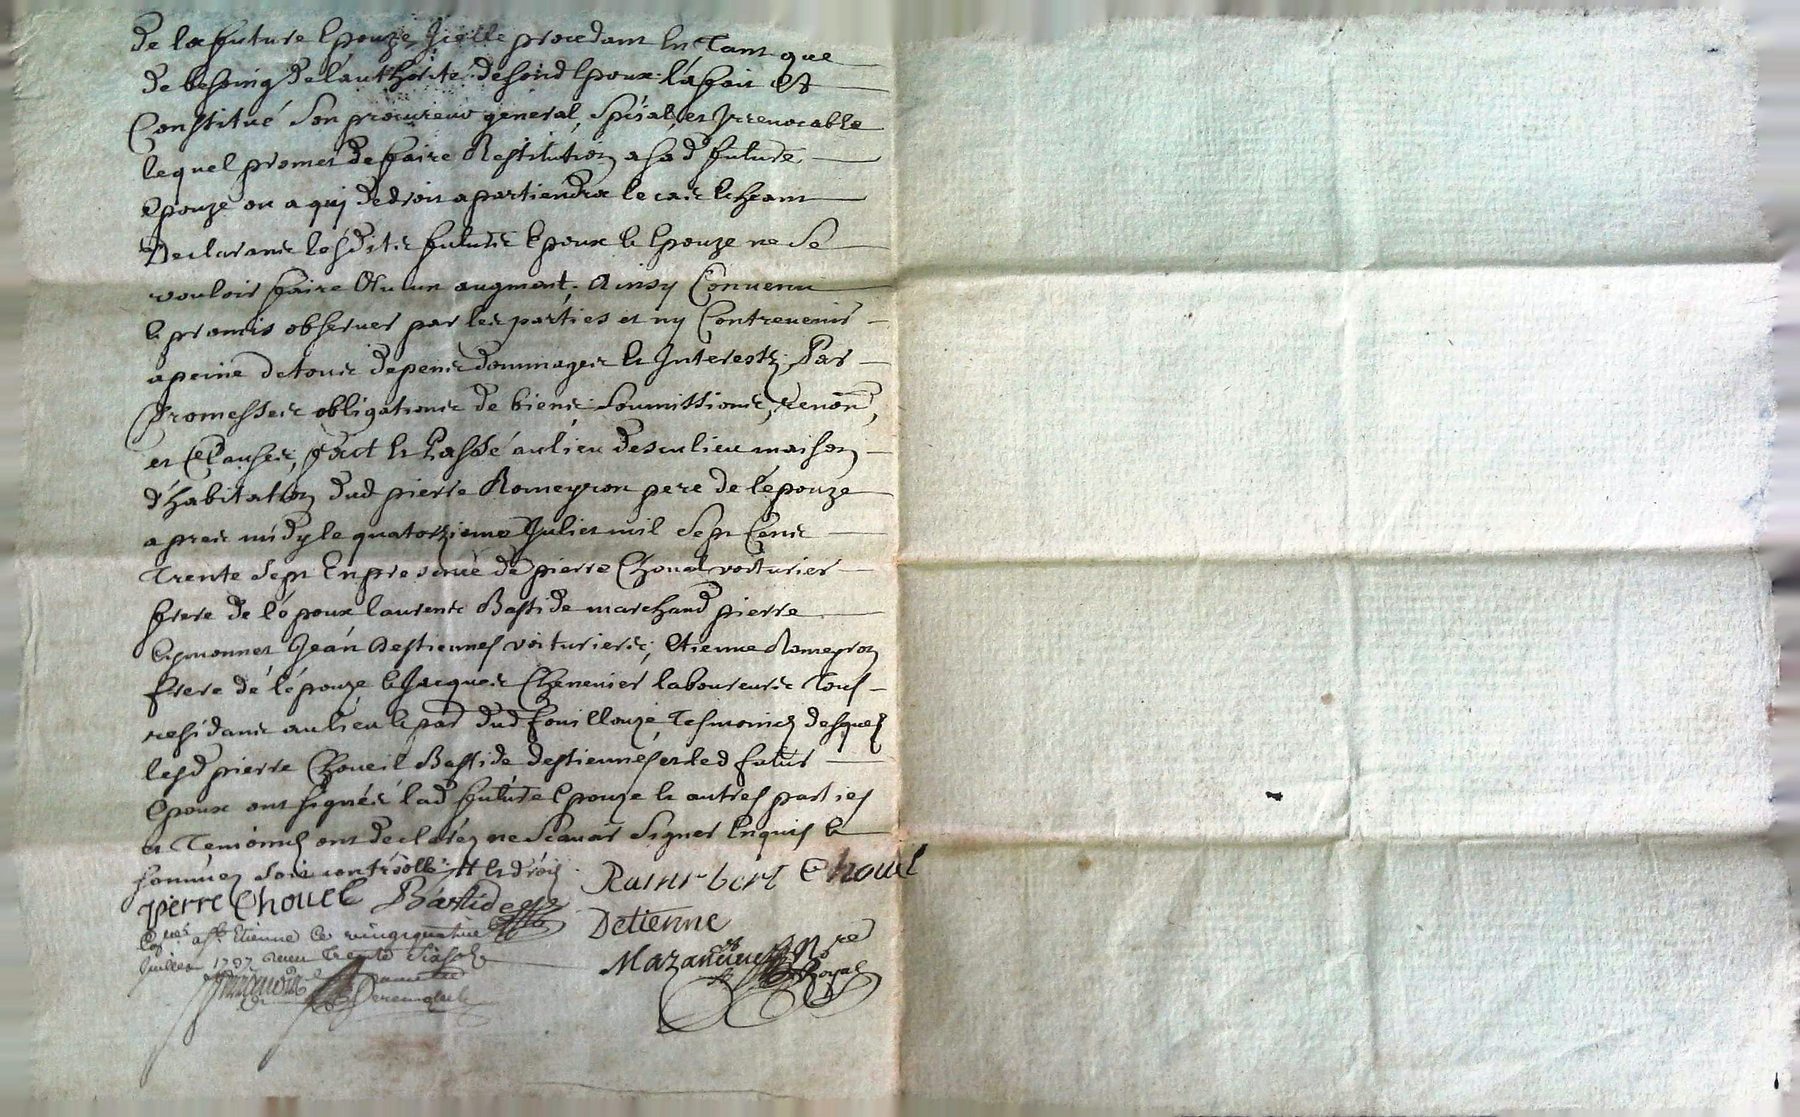 de la future Epouze, Icelle procedant En Tant que
de besoing de l'authorité de son d Epoux l'a fait et
Constitué son procureur general, spésial, et Irrevocable
lequel promet de faire Restitution a sa d future
Epouze ou a quj de droit apartiendra le cas Escheant
Declarants lesdits futurs Epoux & Epouze ne se
vouloir faire Aucun augment, Ainsy Convenu
& promis observer par les parties et ny Contrevenir
a peine de tous depens dommages & Interestz Par
Promesses obligations de biens soumissions, renon
et Clauses, fait & Passé au lieu de maison
d'habitation dud pierre Romeyron pere de l'epouze
apres midy le quatorzieme Juliet mil sept Cents
Trente sept En presence de pierre Chouel voiturier
frere de l'epoux laurent Bastide marchand pierre
Jean destiennes voituriers, Etienne Romeyron
frere de l'epouze & Jacques Chenevier laboureurs Tous
residants au lieu & par dud fouillouze, Tesmoins desquels
lesd pierre Choueil Bastide destiennes et led futur
Epoux ont signés lad future Epouze & autres parties
et Temoins ont declarez ne scavoir signer Enquis &
sommez soit controllé & droit
pierre Chouel Bastide
Raimbert Chouel
Detienne
a St Etienne Ce vingt quatrieme
Juillet 1737
Nre
Royal